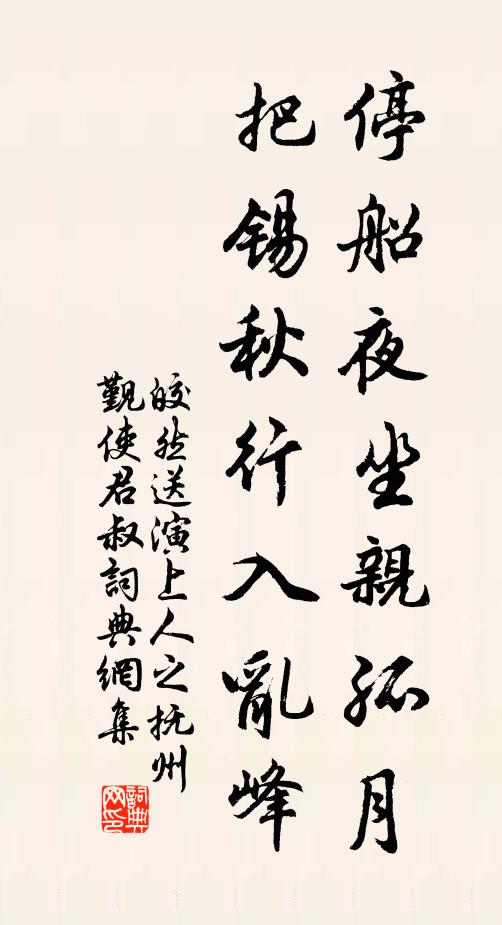 停船夜坐親孤月
把錫秋行入亂峰
皎然送演上人之抚州
覲使君叔詞典網集
詞典
网印